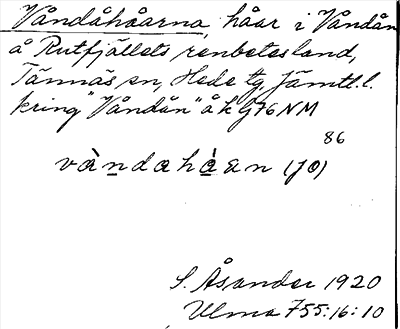 Våndåhåarna, håar i Våndån
å Rutfjällets renbetesland,
Tännäs sn, Hede tg, Jämtl. l.
kring "Våndån" å k G76 NM
86
våndahåen (JO)
S. Åsander 1920
Ulma 755:16:10